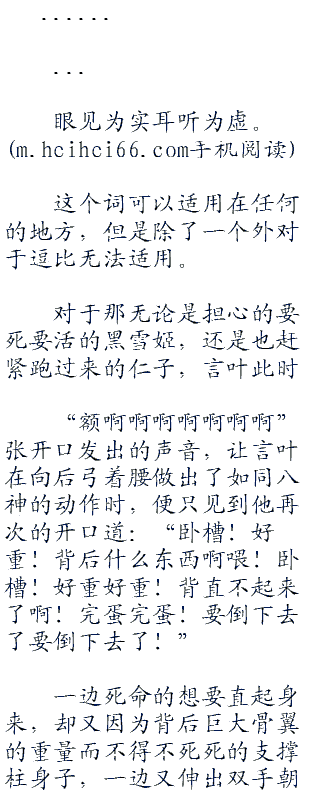 ......
...
眼见为实耳听为虚。
(m.hcihci66.com手机阅读)
这个词可以适用在任何
的地方，但是除了一个外对
于逗比无法适用。
对于那无论是担心的要
死要活的黑雪姬，还是也赶
紧跑过来的仁子，言叶此时
“额啊啊啊啊啊啊啊”
张开口发出的声音，让言叶
在向后弓着腰做出了如同八
神的动作时，便只见到他再
次的开口道：“卧槽！好
重！背后什么东西啊喂！卧
槽！好重好重！背直不起来
了啊！完蛋完蛋！要倒下去
了要倒下去了！”
一边死命的想要直起身
来，却又因为背后巨大骨翼
的重量而不得不死死的支撑
柱身子，一边又伸出双手朝